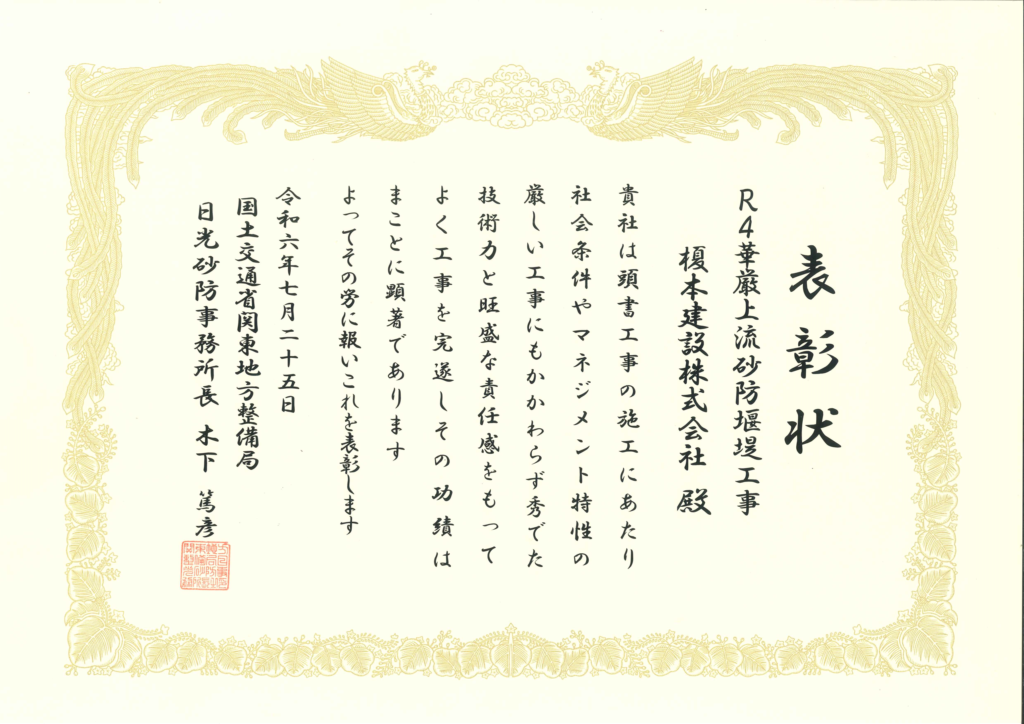 表彰状
R4華厳上流砂防堰堤工事
榎本建設株式会社 殿
貴社は頭書工事の施工にあたり
社会条件やマネジメント特性の
厳しい工事にもかかわらず秀でた
技術力と旺盛な責任感をもって
よく工事を完遂しその功績は
まことに顕著であります
よってその労に報いこれを表彰します
令和六年七月二十五日
国土交通省関東地方整備局
日光砂防事務所長 木下 篤彦